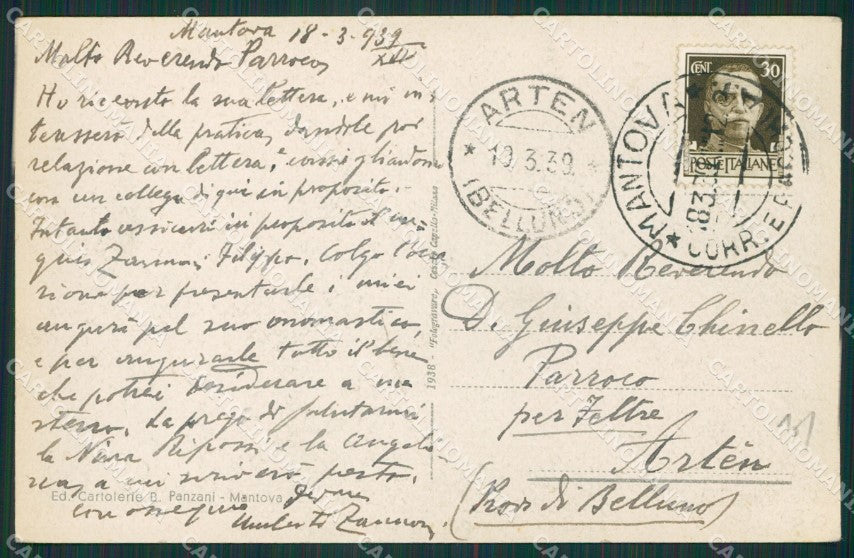 Mantova 18-3-939
XVII
Molto Reverendo Parroco,
Ho ricevuto la sua lettera, e mi in
teresserò della pratica, dandole poi
relazione con lettera,
con un collega di qui in proposito.
Intanto assicuri in proposito il
Zannoni Filippo. Colgo l'occa
sione per presentarle i miei
auguri pel suo onomastico,
e per augurarle tutto il bene
che potrei desiderare a me
stesso. La prego di salutarmi
la Nina Riposi e la Angelo
a cui scriverò presto.
con ossequio
Umberto Zannoni
Ed. Cartolerie B. Panzani - Mantova
1938 - "Fotogravure,
ARTEN
19.3.39
(BELLUNO)
MANTOVA
18.3
CORR. E PACCHI
CENT. 30
POSTE ITALIANE
Molto Reverendo
D. Giuseppe Chinello
Parroco
per Feltre
Artèn
(Prov. di Belluno)
CARTOLINOMANIA